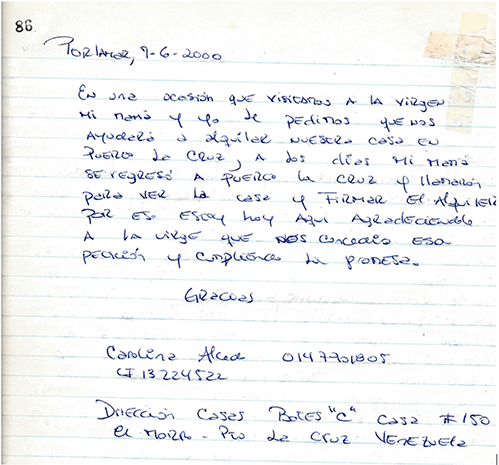 86
Porlamar, 9-6-2000
En una ocasión que visitamos a la virgen
mi mamá y yo le pedimos que nos
ayudara a alquilar nuestra casa en
Puerto La Cruz, a dos días mi mamá
se regresó a Puerto la Cruz y llamaron
para ver la casa y firmar el alquiler
por eso estoy hoy aquí agradeciendole
a la virge que nos concedio esa
petición y cumpliendo la promesa.
Gracias
Carolina 0147701805
CI 13224522
Dirección Casas Botes "C" Casa #150
El Morro - Pto La Cruz Venezuela